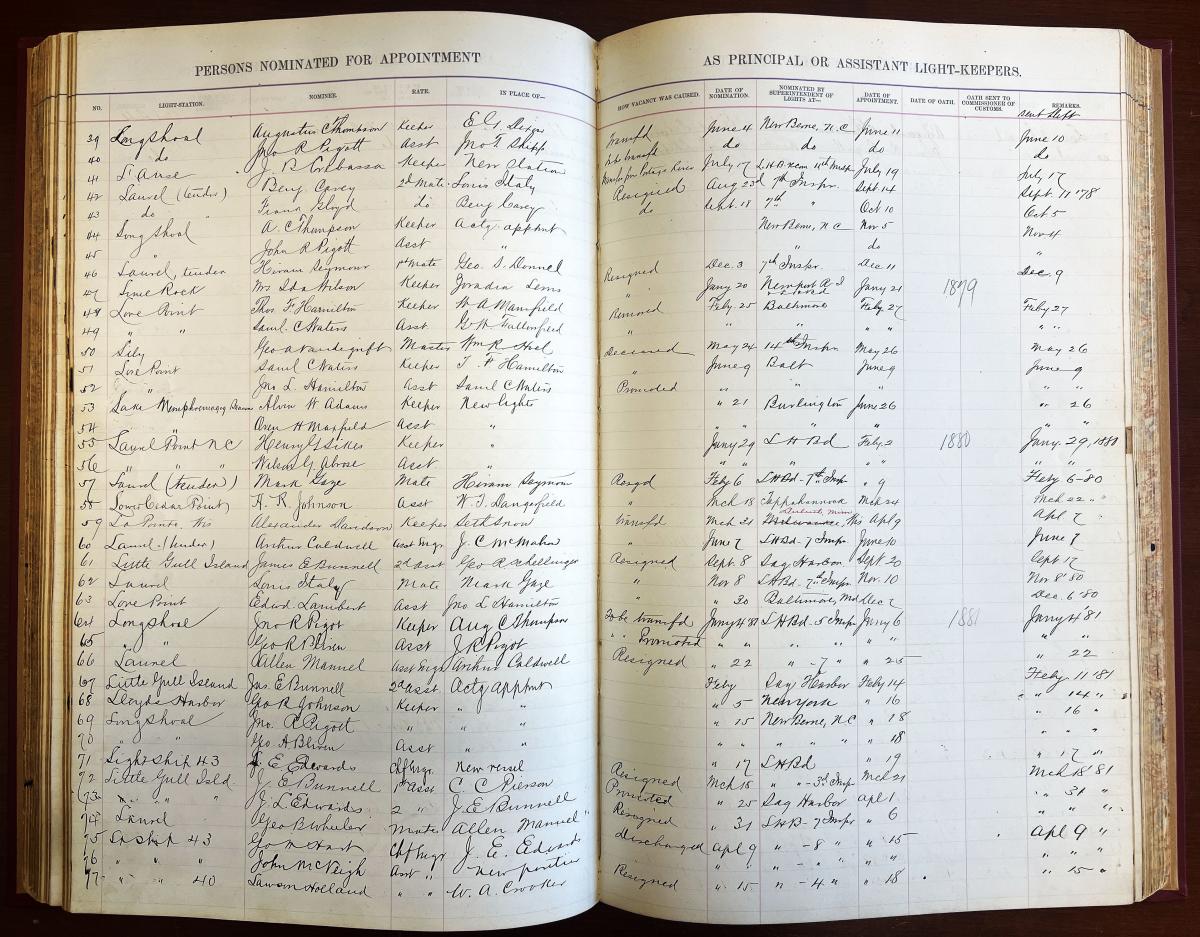 PERSONS NOMINATED FOR APPOINTMENT AS PRINCIPAL OR ASSISTANT LIGHT-KEEPERS.
NO. LIGHT-STATION. NOMINEE. RATE. IN PLACE OF— HOW VACANCY WAS CAUSED. DATE OF NOMINATION. NOMINATED BY SUPERINTENDENT OF LIGHTS AT— DATE OF APPOINTMENT. DATE OF OATH. OATH SENT TO COMMISSIONER OF CUSTOMS. REMARKS.
39 Long Shoal Augustus C Thompson Keeper Transfd June 4 New Berne, N.C June 11 June 10
40 do Jno R Pigott Asst Jno T Shipp To be transfd do do do do
41 L'Anse Keeper New Station July 17 July 19 July 17
42 Laurel (tender) Benj Carey 2d Mate Louis Italy Resigned Aug 23d 7th Inspr. Sept. 14 Sept. 11 '78
43 do Frank Lloyd do Benj Carey do Sept. 18 7th " Oct 10 Oct 5
44 Long Shoal A. C Thompson Keeper Actg appmt New Berne, N C Nov 5 Nov 4
45 " John R Pigott Asst " " do "
46 Laurel, tender Hiram Seymour 1st Mate Geo. S. Donnel Resigned Dec. 3 7th Inspr. Dec 11 Dec. 9
47 Lime Rock Mrs Ida Wilson Keeper Zoradia Lewis " Jany 20 Newport R I Jany 21 1879
48 Love Point Thos F. Hamilton Keeper W A Mansfield Removed Feby. 25 Baltimore Feby 27 Feby 27
49 " " Saml C Waters Asst " " " " " "
50 Lily Geo A Vandegrift Master Wm R Hoel Deceased May 24 14th Inspr May 26 May 26
51 Love Point Saml C Waters Keeper T. F Hamilton " June 9 Balt June 9 June 9
52 " Jno L. Hamilton Asst Saml C Waters Promoted " " " " "
53 Lake Memphremagog Beacons Alvin W Adams Keeper New lights " 21 Burlington June 26 " 26
54 Oren H Maxfield Asst " " " " " "
55 Laurel Point N C Henry G Sikes Keeper " Jany 29 L H Bd Feby 2 1880 Jany. 29, 1880
56 " " " Asst " " " " " " "
57 Laurel (tender) Mark Gaze Mate Hiram Seymour Resgd Feby 6 L H Bd - 7th Insp " 9 Feby 6-80
58 Lower Cedar Point A. R Johnson Asst W. T. Dangerfield " Mch 18 Tappahannock Mch 24 Mch 22 "
59 La Pointe, Wis Alexander Davidson Keeper Seth Snow transfd Mch 31 Duluth, Minn Milwaukee, Wis Apl 9 Apl 7 "
60 Laurel (tender) Arthur Caldwell Asst Engr J. C McMahon " June 7 L H Bd - 7 Inspr June 10 June 7
61 Little Gull Island James E Bunnell 2d Asst Geo R Schellinger Resigned Sept. 8 Sag Harbor Sept 20 Sept 17
62 Laurel Louis Italy Mate Mark Gaze " Nov 8 L H Bd. 7th Inspr Nov. 10 Nov 8 '80
63 Love Point Edwd Lambert Asst Jno L Hamilton " " 30 Baltimore, Md Dec 2 Dec. 6 '80
64 Long Shoal Jno R Pigot Keeper Aug C Thompson To be transfd Jany 4 '81 L H Bd - 5 Inspr Jany 6 1881 Jany 4 '81
65 " Asst J. R Pigot " " Promoted " " " " " "
66 Laurel Allen Manuel Asst Engr Arthur Caldwell Resigned " 22 " - 7 " " 25 " 22
67 Little Gull Island Jas. E Bunnell 2d Asst Actg appmt Feby Sag Harbor Feby 14 Feby 11 '81
68 Lloyds Harbor Geo R Johnson Keeper " " " 5 New York " 16 " 14 "
69 Long Shoal Jno. R Pigott " " " " 15 New Berne, N C " 18 " 16 "
70 " " Asst " " " " " " " 18 " " "
71 Light Ship 43 J. E Edwards Chf Engr. New vessel " 17 L H Bd " 19 " 17 "
72 Little Gull Isld. J. E Bunnell 1st Asst C. C Pierson Resigned Mch 18 " - 3d Inspr Mch 21 Mch 18 '81
73 " " " J. L Edwards 2 " J. E Bunnell Promoted " 25 Sag Harbor Apl 1 " 31 "
74 Laurel Geo B Wheeler Mate Allen Manuel Resigned " 31 L H B - 7 Inspr " 6 " " "
75 Lt Ship 43 Geo W Hart Chf Engr J. E. Edwards Discharged Apl 9 " - 8 " " 15 Apl 9 "
76 " " " John McKeigh Asst " new position " " " " " " "
77 " " 40 Lawson Holland " " W. A. Crooker Resigned " 15 " - 4 " " 18 " 15 "